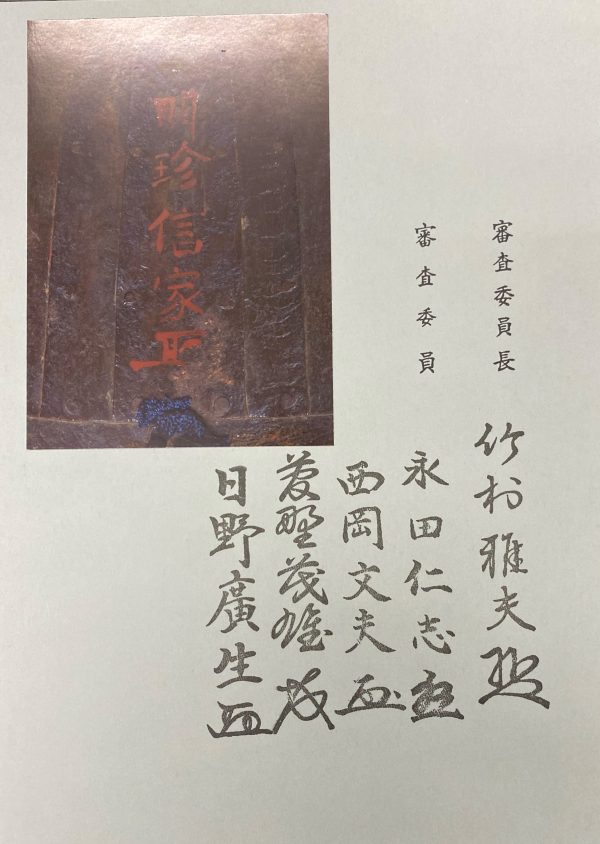 審査委員長
竹村雅夫
審査委員
永田仁志
西岡文夫
菱野茂雄
日野廣生
明珍信家